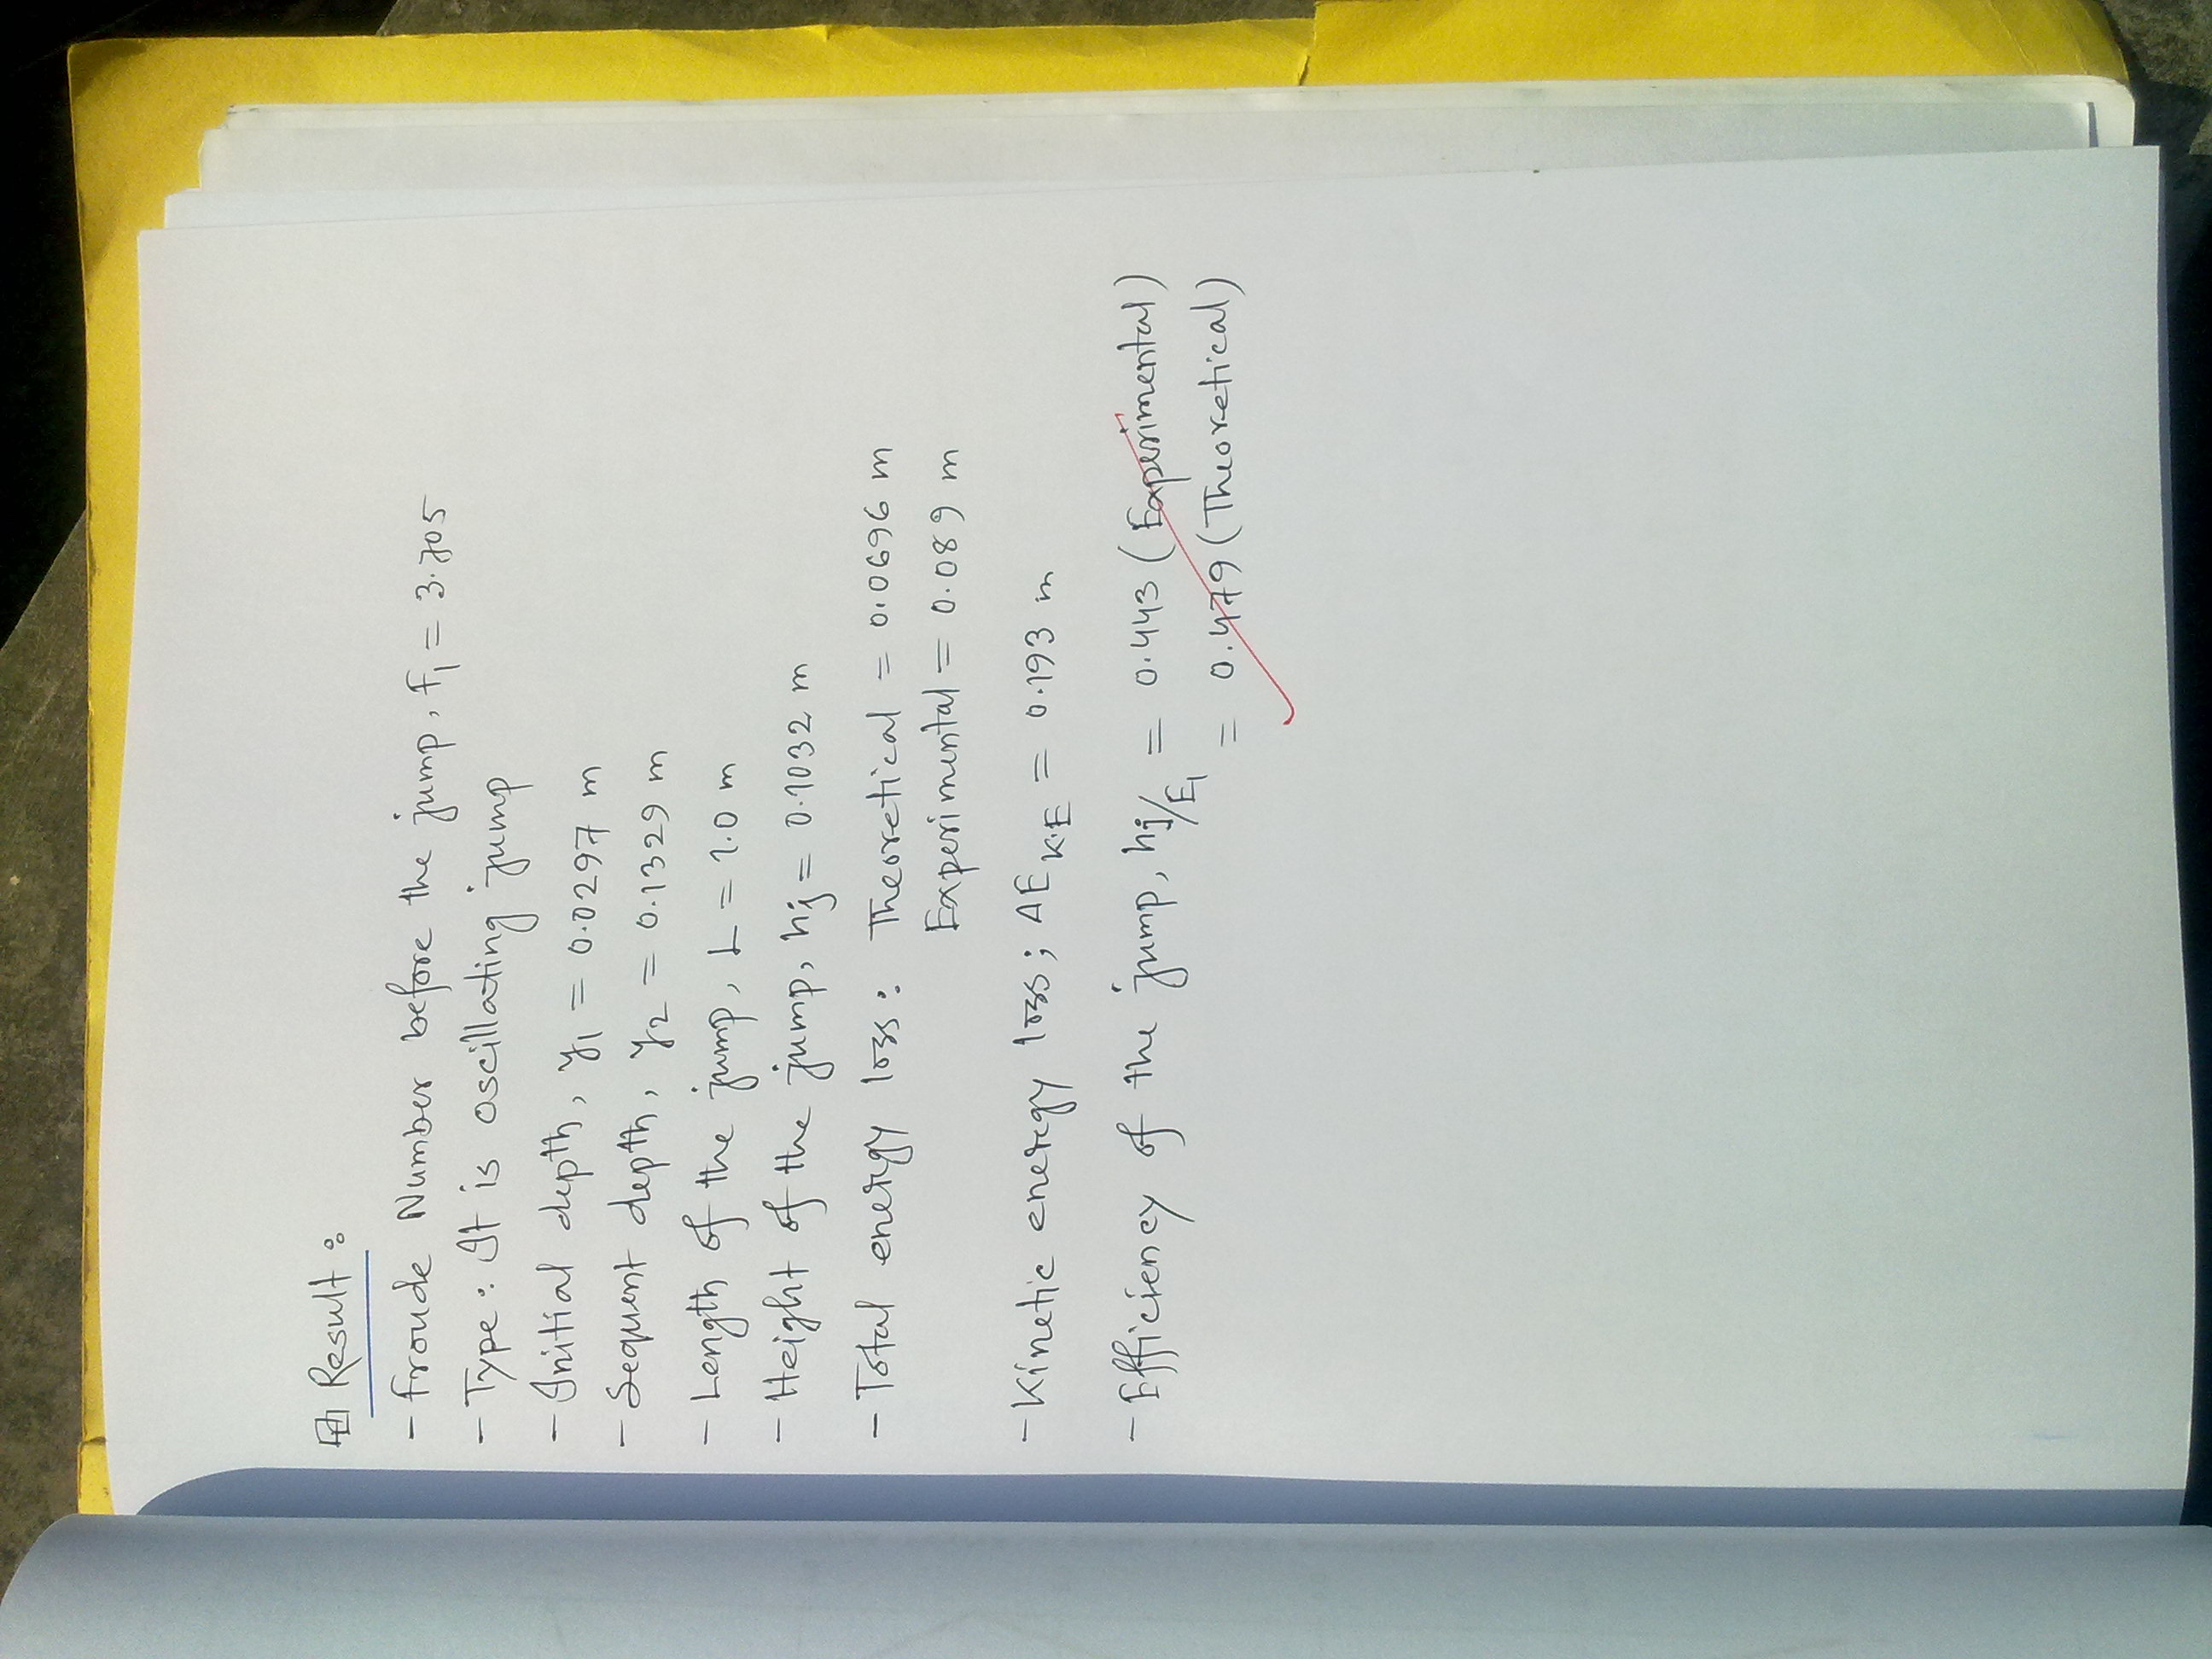 Result:
- Froude Number before the jump, F₁ = 3.705
- Type: It is oscillating jump
- Initial depth, y₁ = 0.0297 m
- Sequent depth, y₂ = 0.1329 m
- Length of the jump, L = 1.0 m
- Height of the jump, hⱼ = 0.1032 m
- Total energy loss: Theoretical = 0.0696 m
Experimental = 0.089 m
- Kinetic energy loss; ΔE K.E = 0.193 m
- Efficiency of the jump, hⱼ/E₁ = 0.443 (Experimental)
= 0.479 (Theoretical)